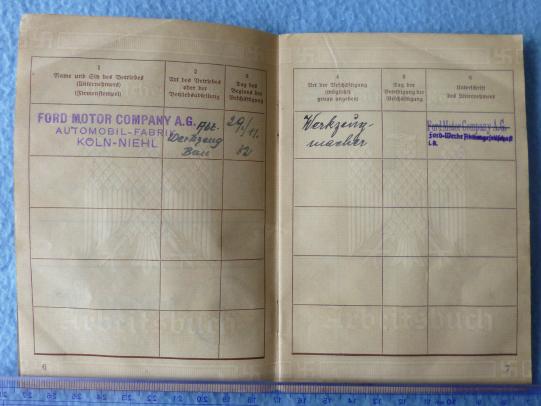 1
Name und Sitz des Betriebes
(Unternehmens)
(Firmenstempel)
2
Art des Betriebes
oder der
Betriebsabteilung
3
Tag des
Beginns der
Beschäftigung
FORD MOTOR COMPANY A.G.
AUTOMOBIL-FABRIK
KÖLN-NIEHL
Abt.
Werkzeug
Bau
Arbeitsbuch
6
4
Art der Beschäftigung
(möglichst
genau angeben)
5
Tag der
Beendigung der
Beschäftigung
6
Unterschrift
des Unternehmers
Werkzeug-
macher
Ford Motor Company A.G.
Ford-Werke Aktiengesellschaft
Arbeitsbuch
7